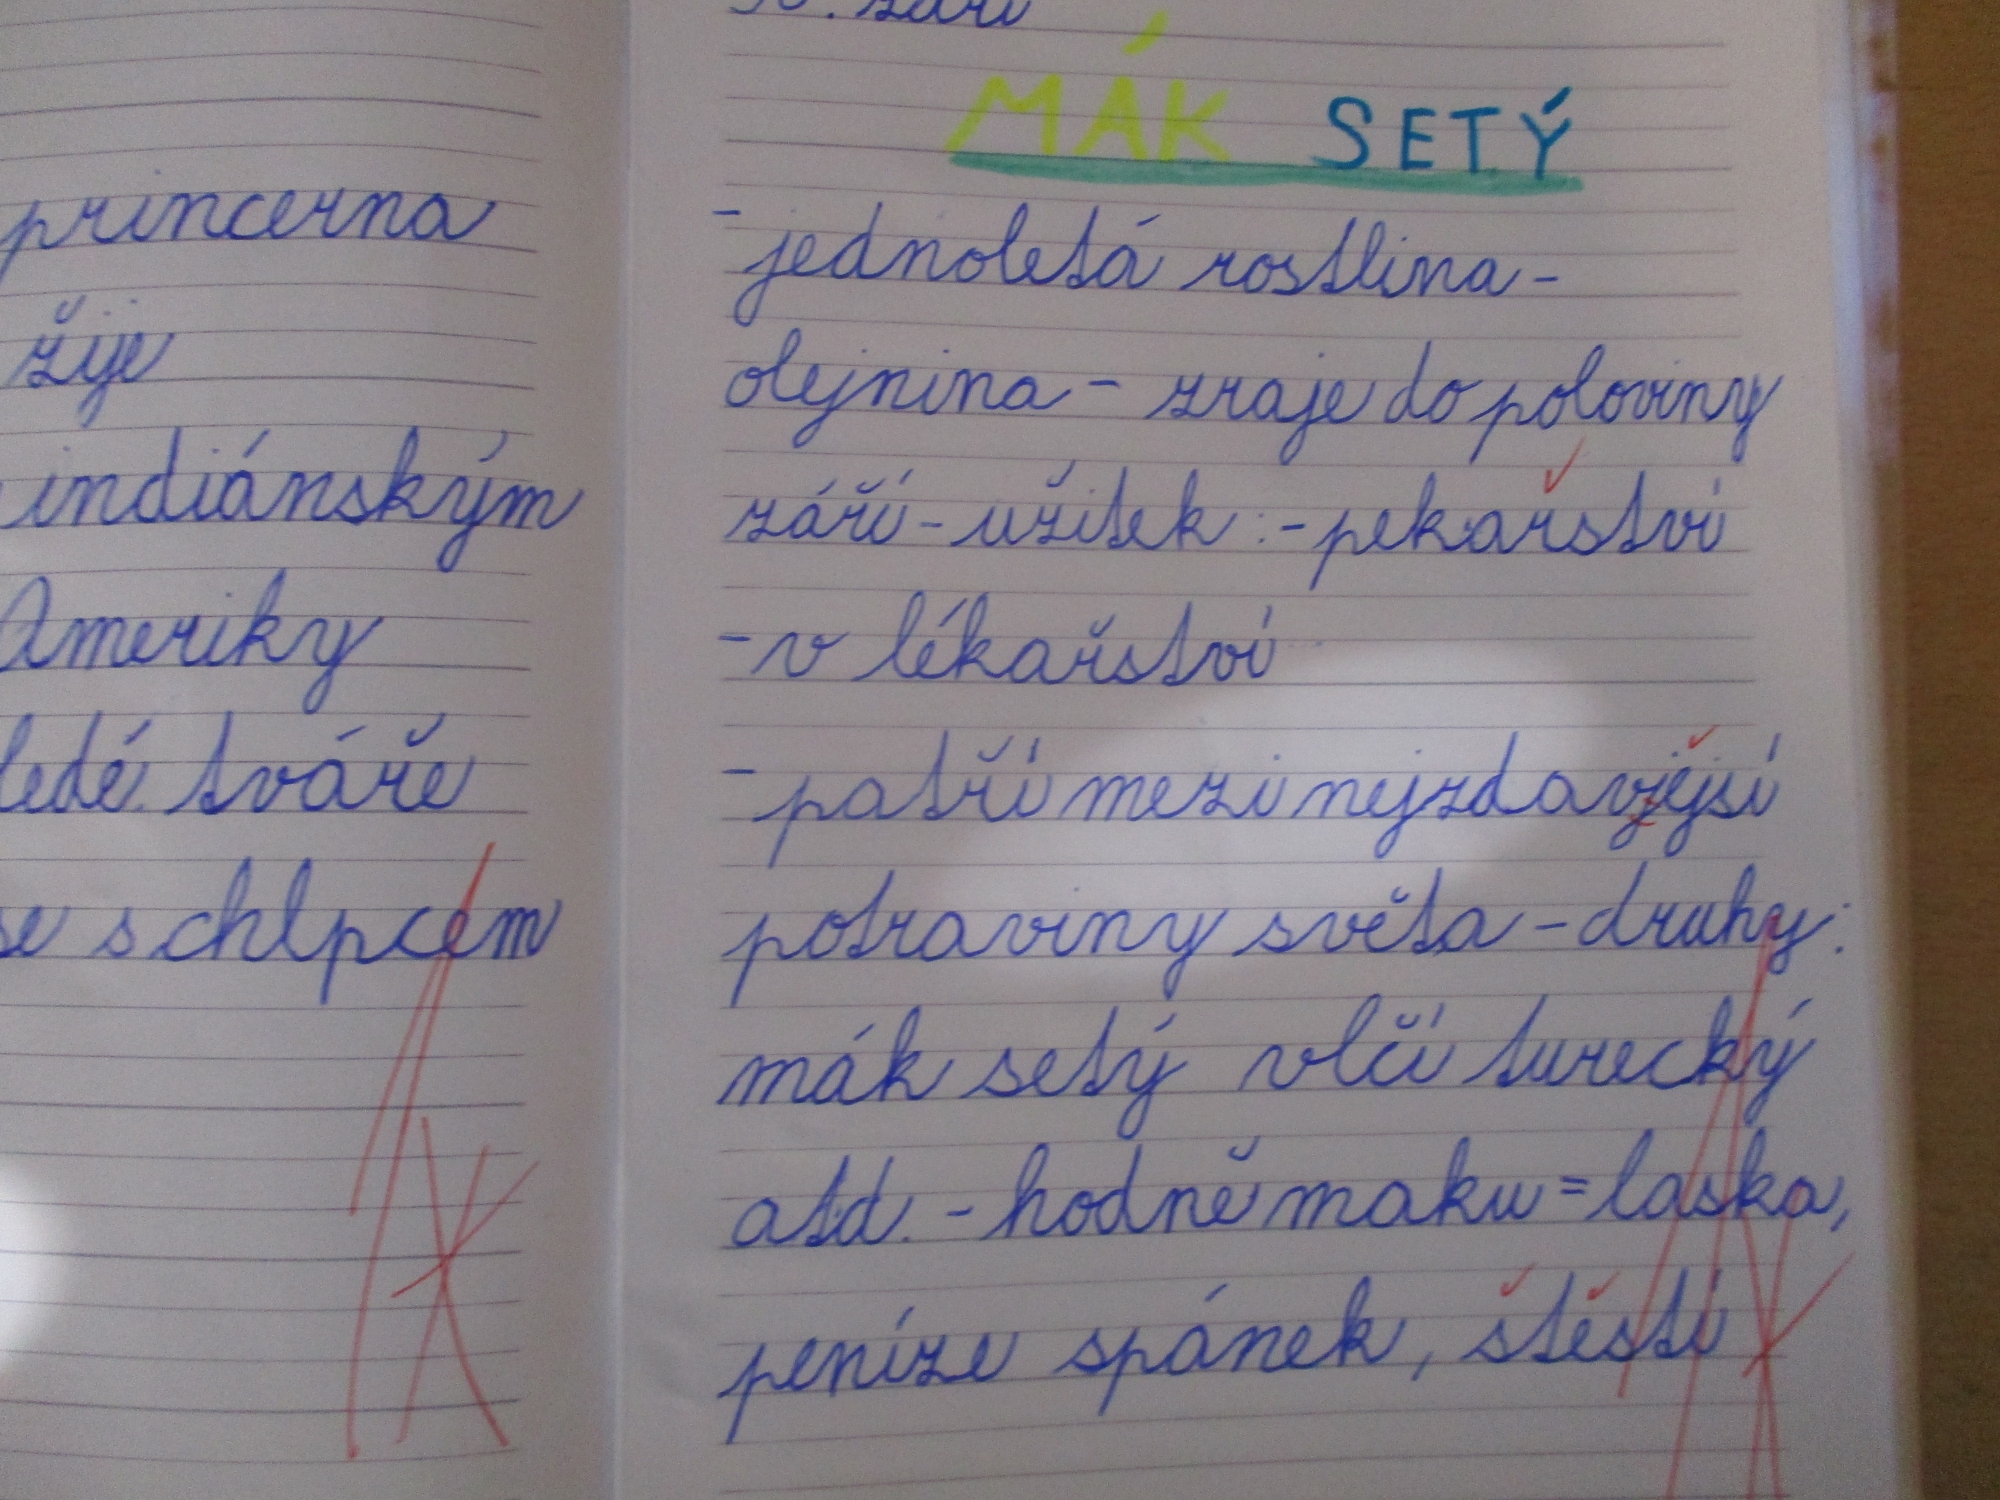 princezna
žije
indiánským
Ameriky
ledé tváře
se s chlpcem
září
MÁK SETÝ
- jednoletá rostlina -
olejnina - zraje do poloviny
září - užitek : - pekařství
- v lékařství
- patří mezi nejzdavjějsí
potraviny světa - druhy :
mák setý vlčí turecký
atd. - hodně maku = laska,
peníze spánek, štěstí